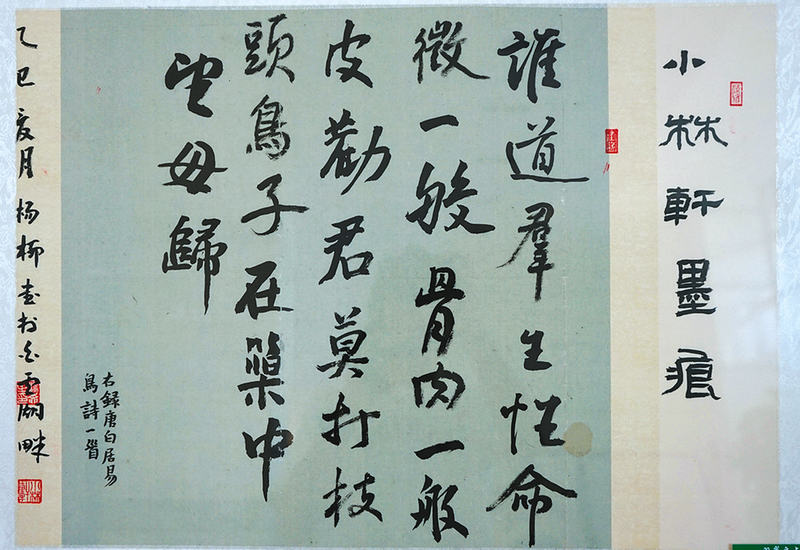 小林軒墨痕
誰道羣生性命
微一般骨肉一般
皮勸君莫打枝
頭鳥子在巢中
望母歸
右錄唐白居易
鳥詩一首
乙巳夏月楊柳書於湖畔